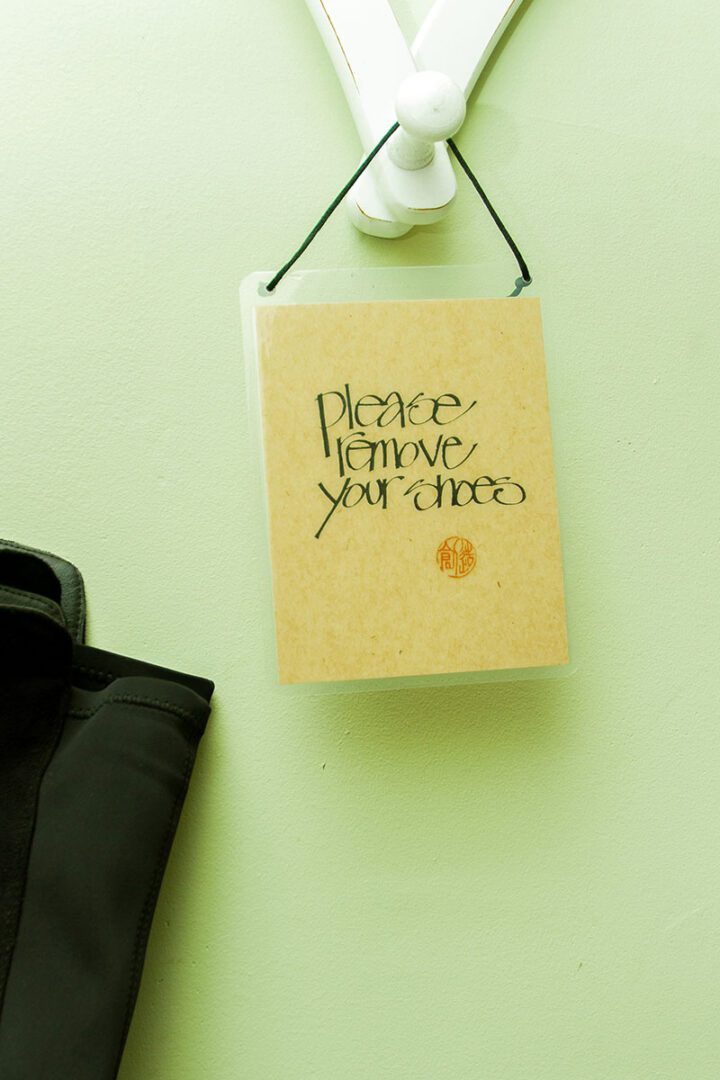 please
remove
your shoes
創造